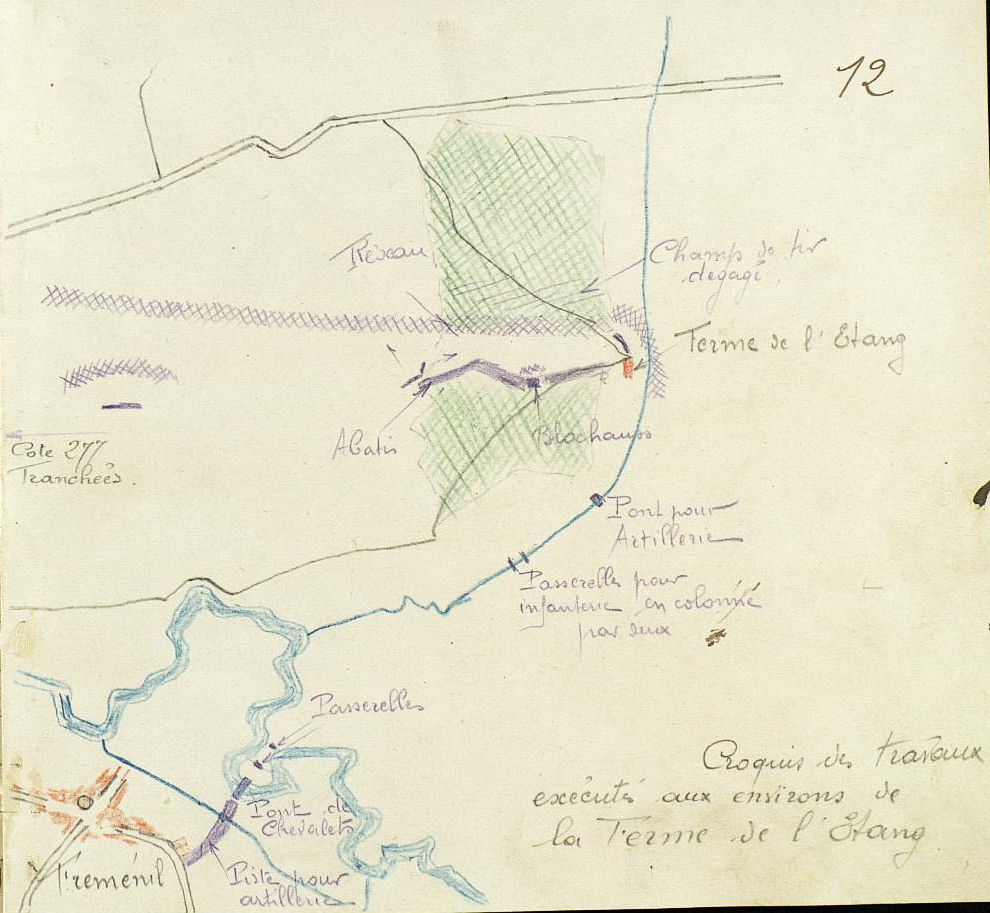 12
Réseau
Champ de tir
dégagé.
Ferme de l'Etang
Abatis
Blockauss
Cote 277
Tranchées.
Pont pour
Artillerie
Passerelle pour
infanterie en colonne
par deux
Passerelles
Pont de
Chevalets
Piste pour
artillerie
Fréménil
Croquis des travaux
exécutés aux environs de
la Ferme de l'Etang